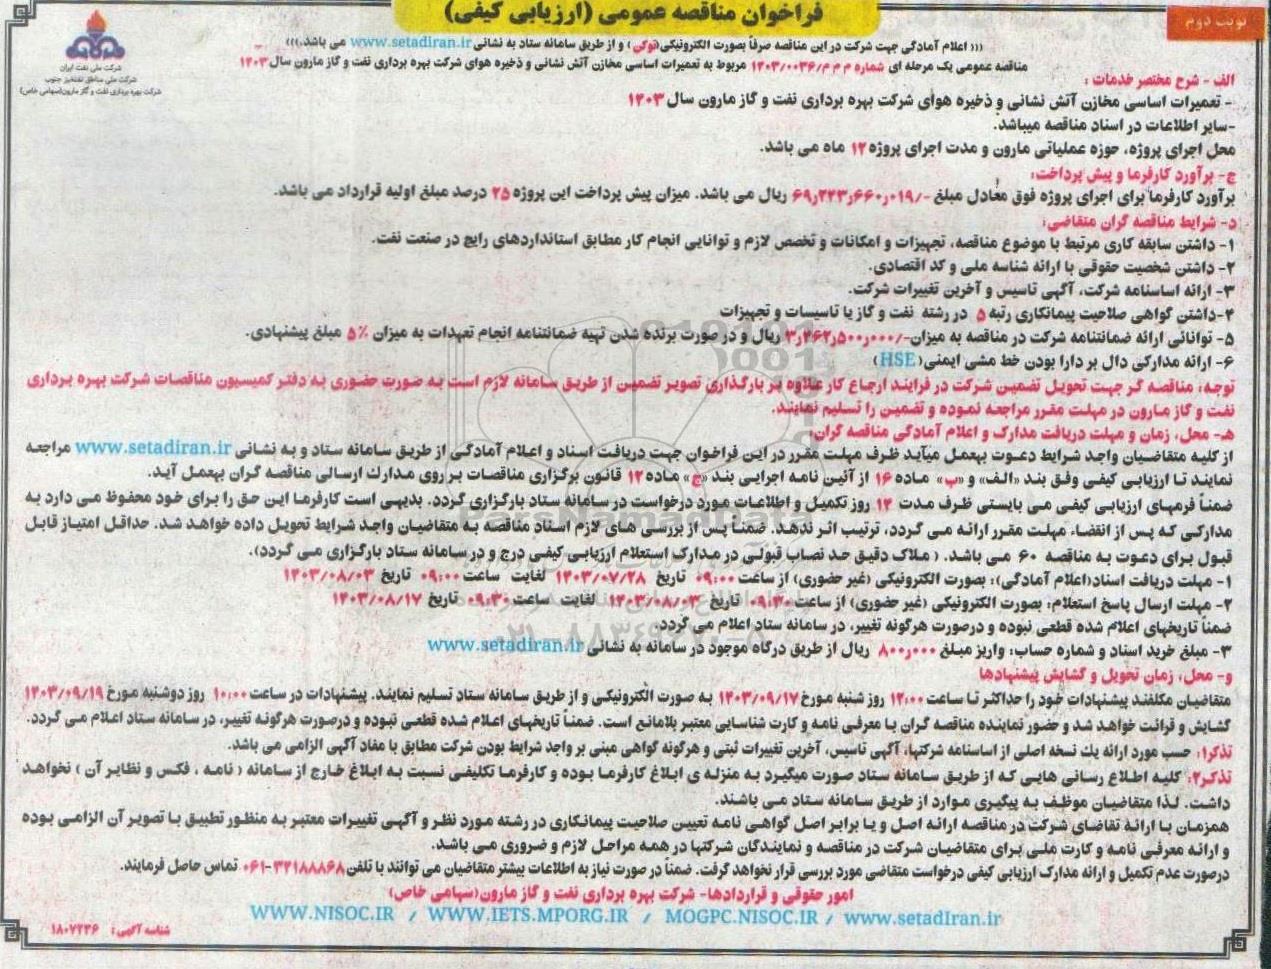 نوبت دوم
فراخوان مناقصه عمومی (ارزیابی کیفی)
شرکت ملی نفت ایران
شرکت ملی مناطق نفتخیز جنوب
شرکت بهره برداری نفت و گاز مارون(سهامی خاص)
((( اعلام آمادگی جهت شرکت در این مناقصه صرفاً بصورت الکترونیکی(توکن) و از طریق سامانه ستاد به نشانی www.setadiran.ir می باشد.)))
مناقصه عمومی یک مرحله ای شماره م م م/۱۴۰۳/۰۰۳۶ مربوط به تعمیرات اساسی مخازن آتش نشانی و ذخیره هوای شرکت بهره برداری نفت و گاز مارون سال ۱۴۰۳
الف - شرح مختصر خدمات :
- تعمیرات اساسی مخازن آتش نشانی و ذخیره هوای شرکت بهره برداری نفت و گاز مارون سال ۱۴۰۳
-سایر اطلاعات در اسناد مناقصه میباشد.
محل اجرای پروژه، حوزه عملیاتی مارون و مدت اجرای پروژه ۱۲ ماه می باشد.
ج- برآورد کارفرما و پیش پرداخت:
برآورد کارفرما برای اجرای پروژه فوق معادل مبلغ -/۶۹٫۲۴۳٫۶۶۰٫۰۱۹ ریال می باشد. میزان پیش پرداخت این پروژه ۲۵ درصد مبلغ اولیه قرارداد می باشد.
د- شرایط مناقصه گران متقاضی:
۱- داشتن سابقه کاری مرتبط با موضوع مناقصه، تجهیزات و امکانات و تخصص لازم و توانایی انجام کار مطابق استانداردهای رایج در صنعت نفت.
۲- داشتن شخصیت حقوقی با ارائه شناسه ملی و کد اقتصادی.
۳- ارائه اساسنامه شرکت، آگهی تاسیس و آخرین تغییرات شرکت.
۴-داشتن گواهی صلاحیت پیمانکاری رتبه ۵ در رشته نفت و گاز یا تاسیسات و تجهیزات
۵- توانائی ارائه ضمانتنامه شرکت در مناقصه به میزان-/۳٫۴۶۲٫۵۰۰٫۰۰۰ ریال و در صورت برنده شدن تهیه ضمانتنامه انجام تعهدات به میزان ۵٪ مبلغ پیشنهادی.
۶- ارائه مدارکی دال بر دارا بودن خط مشی ایمنی( HSE)
توجه: مناقصه گر جهت تحویل تضمین شرکت در فرایند ارجاع کار علاوه بر بارگذاری تصویر تضمین از طریق سامانه لازم است به صورت حضوری به دفتر کمیسیون مناقصات شرکت بهره برداری
نفت و گاز مارون در مهلت مقرر مراجعه نموده و تضمین را تسلیم نمایند.
هـ- محل، زمان و مهلت دریافت مدارک و اعلام آمادگی مناقصه گران:
از کلیه متقاضیان واجد شرایط دعوت بعمل میآید ظرف مهلت مقرر در این فراخوان جهت دریافت اسناد و اعلام آمادگی از طریق سامانه ستاد و به نشانی www.setadiran.ir مراجعه
نمایند تا ارزیابی کیفی وفق بند «الف» و «ب» ماده ۱۶ از آئین نامه اجرایی بند «ج» ماده ۱۲ قانون برگزاری مناقصات بر روی مدارك ارسالی مناقصه گران بعمل آید.
ضمناً فرمهای ارزیابی کیفی می بایستی ظرف مدت ۱۴ روز تکمیل و اطلاعات مورد درخواست در سامانه ستاد بارگزاری گردد. بدیهی است کارفرما این حق را برای خود محفوظ می دارد به
مدارکی که پس از انقضاء مهلت مقرر ارائه می گردد، ترتیب اثر ندهد. ضمناً پس از بررسی های لازم اسناد مناقصه به متقاضیان واجد شرایط تحویل داده خواهد شد. حداقل امتیاز قابل
قبول برای دعوت به مناقصه ۶۰ می باشد. ( ملاک دقیق حد نصاب قبولی در مدارک استعلام ارزیابی کیفی درج و در سامانه ستاد بارگزاری می گردد).
۱- مهلت دریافت اسناد(اعلام آمادگی): بصورت الکترونیکی (غیر حضوری) از ساعت ۰۹:۰۰ تاریخ ۱۴۰۳/۰۷/۲۸ لغایت ساعت ۰۹:۰۰ تاریخ ۱۴۰۳/۰۸/۰۳
۲- مهلت ارسال پاسخ استعلام: بصورت الکترونیکی (غیر حضوری) از ساعت ۰۹:۳۰ تاریخ ۱۴۰۳/۰۸/۰۳ لغایت ساعت ۰۹:۳۰ تاریخ ۱۴۰۳/۰۸/۱۷
ضمناً تاریخهای اعلام شده قطعی نبوده و درصورت هرگونه تغییر، در سامانه ستاد اعلام می گردد
۳- مبلغ خرید اسناد و شماره حساب: واریز مبلغ ۸۰۰٫۰۰۰ ریال از طریق درگاه موجود در سامانه به نشانی www.setadiran.ir
و- محل، زمان تحویل و گشایش پیشنهادها
متقاضیان مکلفند پیشنهادات خود را حداکثر تا ساعت ۱۲:۰۰ روز شنبه مورخ ۱۴۰۳/۰۹/۱۷ به صورت الکترونیکی و از طریق سامانه ستاد تسلیم نمایند. پیشنهادات در ساعت ۱۰:۰۰ روز دوشنبه مورخ ۱۴۰۳/۰۹/۱۹
گشایش و قرائت خواهد شد و حضور نماینده مناقصه گران با معرفی نامه و کارت شناسایی معتبر بلامانع است. ضمناً تاریخهای اعلام شده قطعی نبوده و درصورت هرگونه تغییر، در سامانه ستاد اعلام می گردد.
تذکر۱: حسب مورد ارائه یك نسخه اصلی از اساسنامه شرکتها، آگهی تاسیس، آخرین تغییرات ثبتی و هرگونه گواهی مبنی بر واجد شرایط بودن شرکت مطابق با مفاد آگهی الزامی می باشد.
تذکر۲: کلیه اطلاع رسانی هایی که از طریق سامانه ستاد صورت میگیرد به منزله ی ابلاغ کارفرما بوده و کارفرما تکلیفی نسبت به ابلاغ خارج از سامانه ( نامه ، فکس و نظایر آن ) نخواهد
داشت. لذا متقاضیان موظف به پیگیری موارد از طریق سامانه ستاد می باشند.
همزمان با ارائه تقاضای شرکت در مناقصه ارائه اصل و یا برابر اصل گواهی نامه تعیین صلاحیت پیمانکاری در رشته مورد نظر و آگهی تغییرات معتبر به منظور تطبیق با تصویر آن الزامی بوده
و ارائه معرفی نامه و کارت ملی برای متقاضیان شرکت در مناقصه و نمایندگان شرکتها در همه مراحل لازم و ضروری می باشد.
درصورت عدم تکمیل و ارائه مدارک ارزیابی کیفی درخواست متقاضی مورد بررسی قرار نخواهد گرفت. ضمناً در صورت نیاز به اطلاعات بیشتر متقاضیان می توانند با تلفن ۳۲۱۸۸۸۶۸-۰۶۱ تماس حاصل فرمایند.
امور حقوقی و قراردادها- شرکت بهره برداری نفت و گاز مارون(سهامی خاص)
WWW.NISOC.IR / WWW.IETS.MPORG.IR / MOGPC.NISOC.IR / www.setadIran.ir
شناسه آگهی: ۱۸۰۷۲۳۶